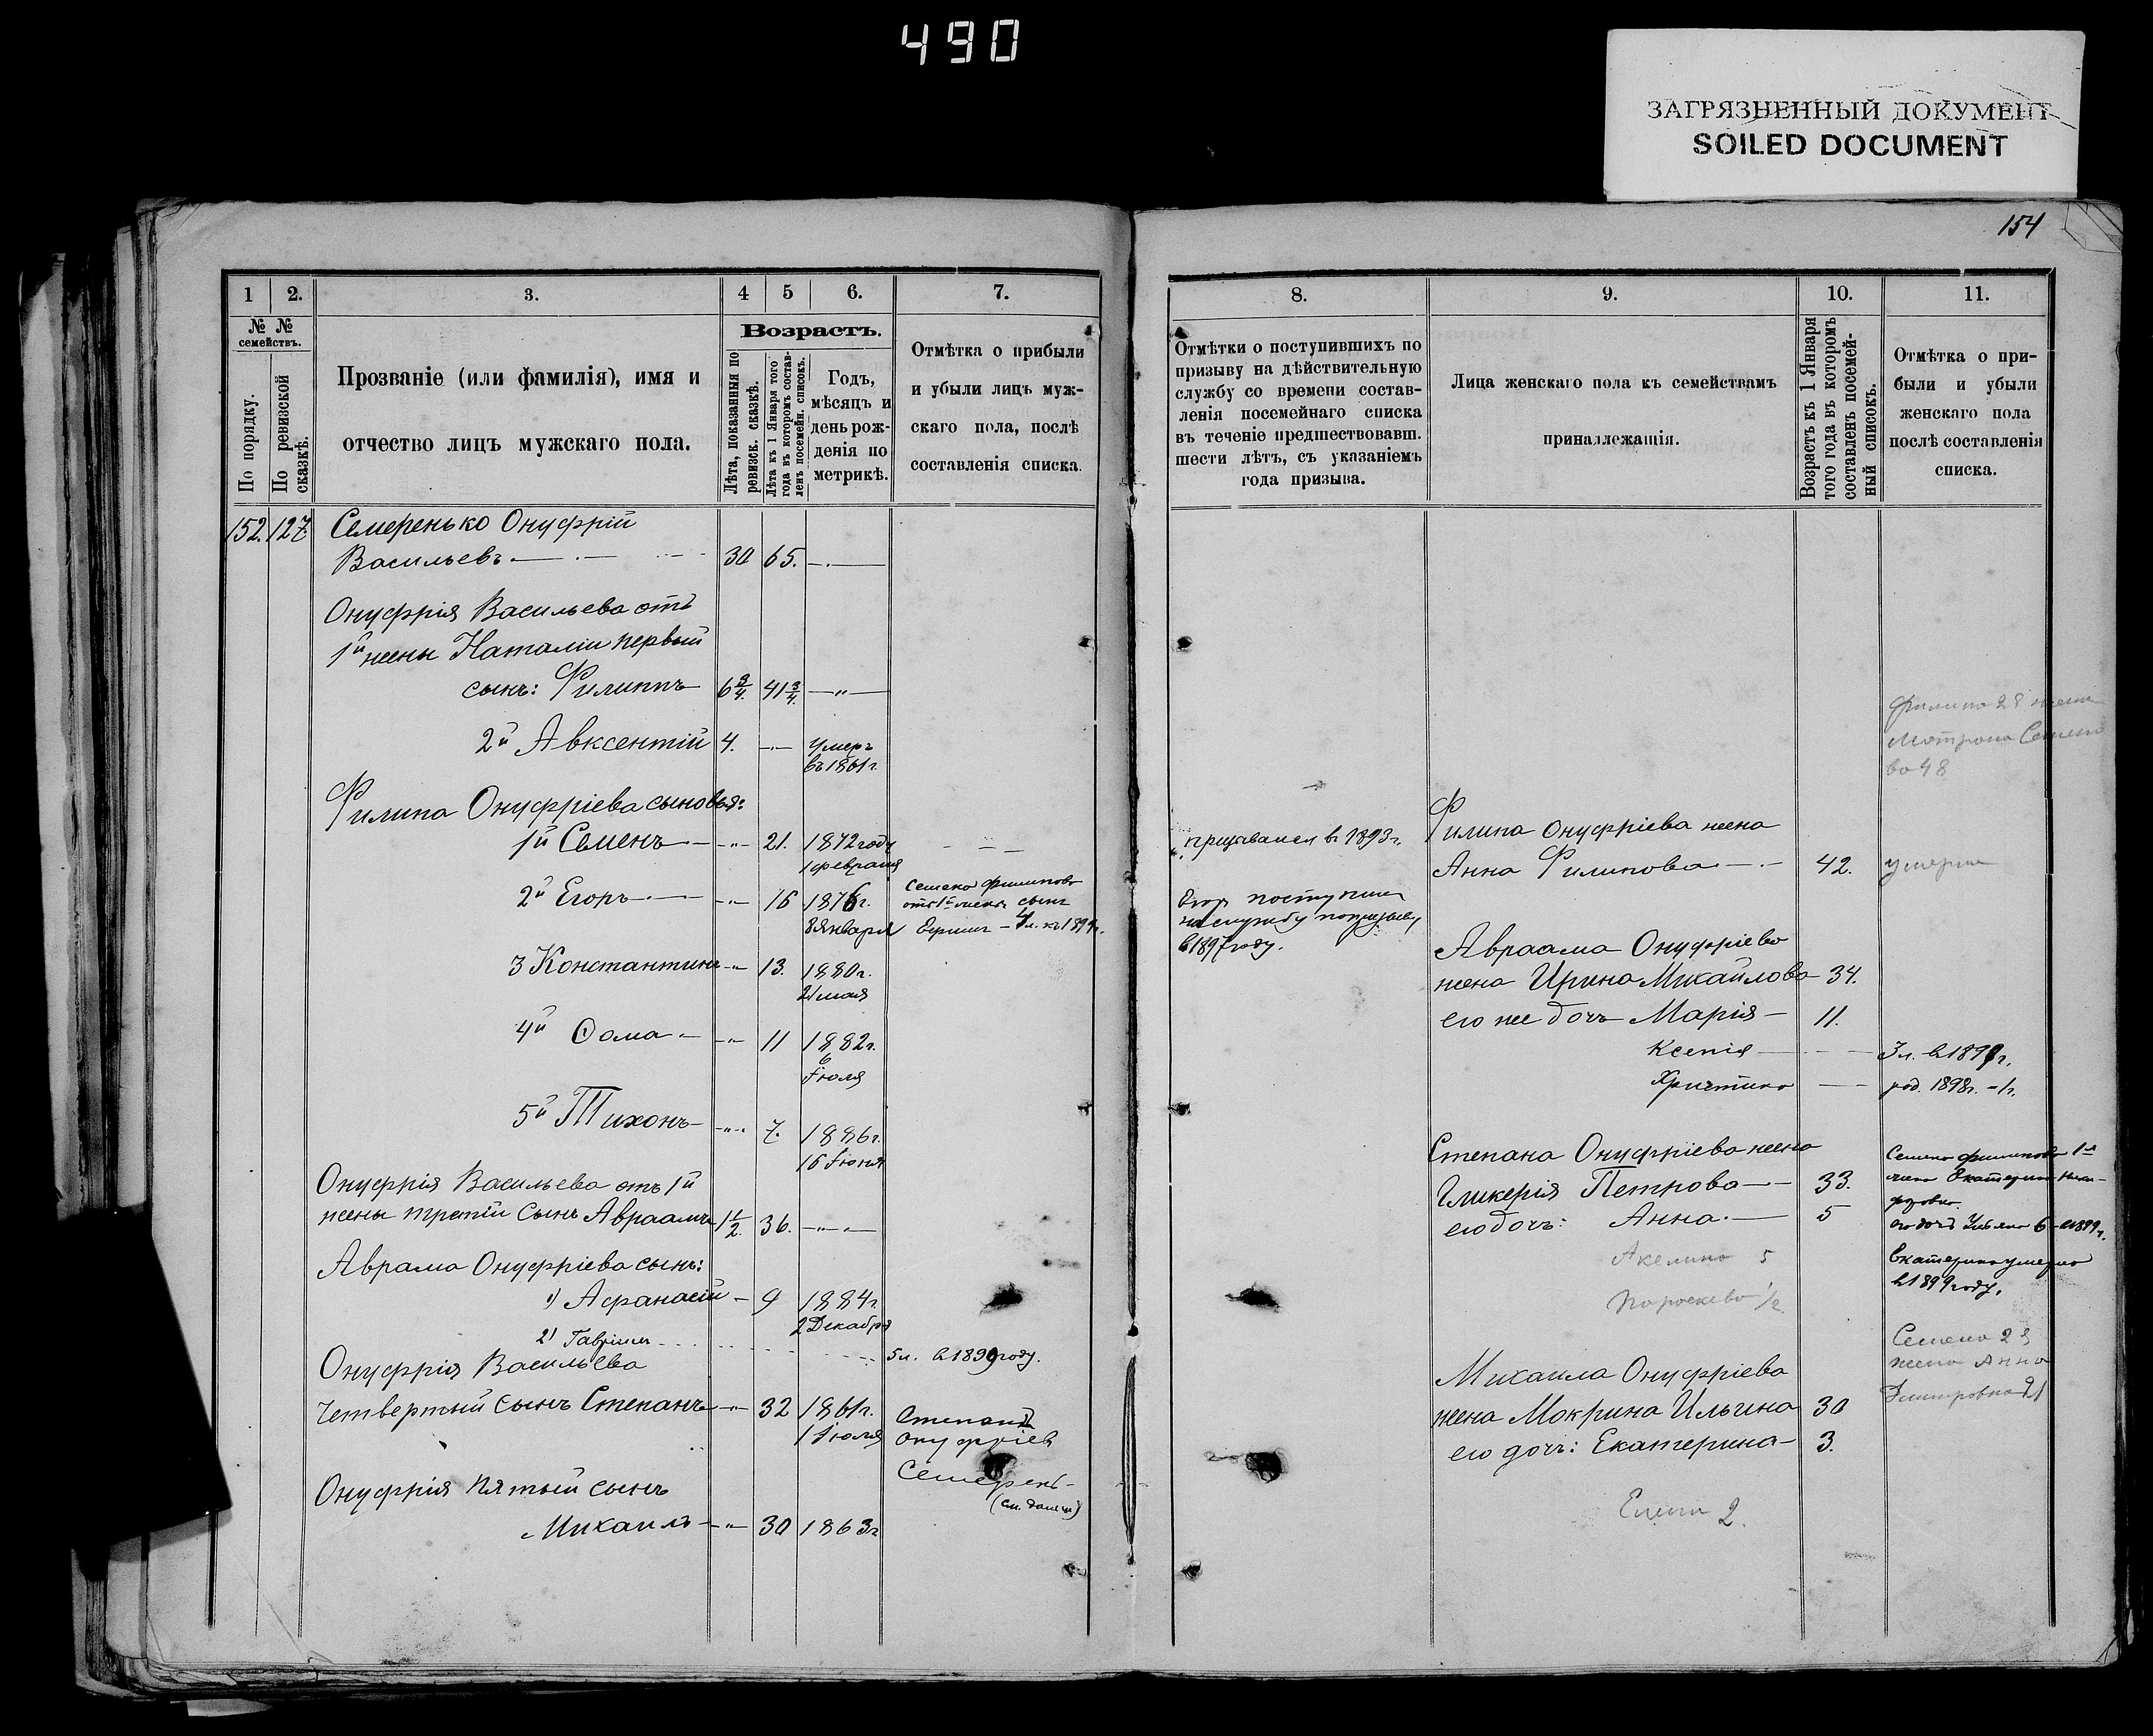 490
ЗАГРЯЗНЕННЫЙ ДОКУМЕНТ
SOILED DOCUMENT
154
1
2.
3.
4
5
6.
7.
№ №
семействъ.
По порядку.
По ревизской
сказкѣ.
Прозваніе (или фамилія), имя и
отчество лицъ мужскаго пола.
Возрастъ.
Лѣта, показанныя по
ревизск. сказкѣ.
Лѣта къ 1 Января того
года въ которомъ состав-
ленъ посемейн. списокъ.
Годъ,
мѣсяцъ и
день рож-
денія по
метрикѣ.
Отмѣтка о прибыли
и убыли лицъ муж-
скаго пола, послѣ
составленія списка.
8.
9.
10.
11.
Отмѣтки о поступившихъ по
призыву на дѣйствительную
службу со времени состав-
ленія посемейнаго списка
въ теченіе предшествовавш.
шести лѣтъ, съ указаніемъ
года призыва.
Лица женскаго пола къ семействамъ
принадлежащія.
Возрастъ къ 1 Января
того года въ которомъ
составленъ посемей-
ный списокъ.
Отмѣтка о при-
были и убыли
женскаго пола
послѣ составленія
списка.
152. 127. Семеренько Онуфрій
Васильевъ 30 65.
Онуфрія Васильева отъ
1й жены Наталіи первый
сынъ: Филиппъ 6 3/4. 41 3/4.
2й Авксентій 4. умеръ
въ 1861 г.
Филипа Онуфріева сыновья:
1й Семенъ 21. 1872 году
1 февраля
2й Егоръ 16 1876 г.
8 января
Семена Филипова
отъ 1й жены сынъ
4 л. къ 1899 г.
3 Константинъ 13. 1880 г.
21 мая
4й Ѳома 11 1882 г.
6
Іюля
5й Тихонъ 7. 1886 г.
16 Іюня
Онуфрія Васильева отъ 1й
жены третій сынъ Авраамъ 1 1/2. 36.
Аврама Онуфріева сынъ:
1) Афанасій 9 1884 г.
2 Декабря
2) Гавріилъ 5 л. в 1899 году.
Онуфрія Васильева
четвертый сынъ Степанъ 32 1861 г.
1 Іюля
Степанъ
Онуфріев
Семерень-
(см. далѣе)
Онуфрія пятый сынъ
Михаилъ 30 1863 г
призывался в 1893 г.
Егор поступил
на службу по призыву
в 1897 году.
Филипа Онуфріева жена
Анна Филипова 42. умерла
Авраама Онуфріева
жена Ирина Михайлова 34.
его же дочь Марія 11.
Ксенія 3 л. в 1899 г.
Христина род. 1898 г. - 1 г.
Степана Онуфріева жена
Гликерія Петрова 33.
его дочь: Анна. 5
Акелина 5
Пароскева 1/2
Михаила Онуфріева
жена Мокрина Ильина 30
его дочь: Екатерина 3.
Елена 2.
Филипа 2я жена
Мотрона Семено
ва 48
Семена Филипова 1я
жена Екатерина
его дочь Ульяна 6 - в 1899 г.
Екатерина умерла
в 1899 году.
Семена 2я
жена Анна
Дмитровна 21